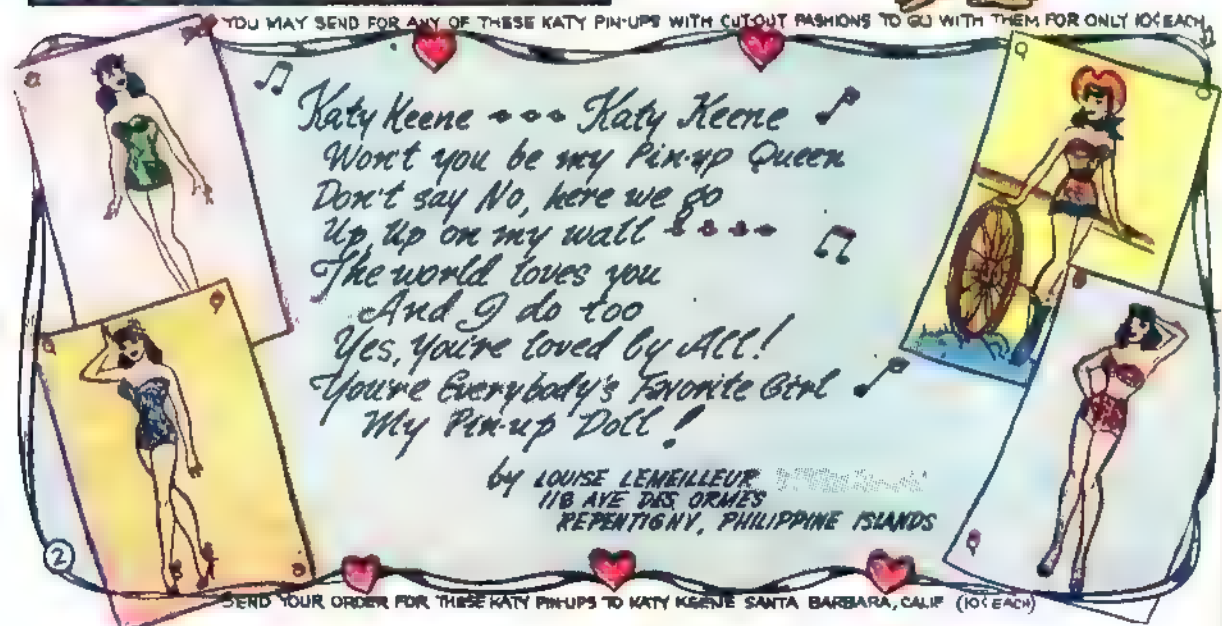 YOU MAY SEND FOR ANY OF THESE KATY PIN-UPS WITH CUT-OUT FASHIONS TO GO WITH THEM FOR ONLY 10¢ EACH
Katy Keene Katy Keene
Won't you be my Pin-up Queen
Don't say No, here we go
Up, Up on my wall
The world loves you
And I do too
Yes, You're loved by All!
You're Everybody's Favorite Girl
My Pin-up Doll!
by LOUISE LEMEILLEUR
118 AVE DES ORMES
REPENTIGNY, PHILIPPINE ISLANDS
2
SEND YOUR ORDER FOR THESE KATY PIN-UPS TO KATY KEENE SANTA BARBARA, CALIF (10¢ EACH)